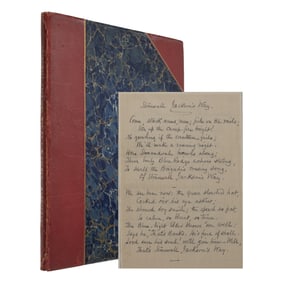 Stonewall Jackson's Way.
Come, stack arms, men, pile on the rails;
Stir up the camp fire bright!
No growling if the canteen fails,
We'll make a roaring night.
Here Shenandoah brawls along,
There burly Blue Ridge echoes strong,
To swell the Brigade's rousing song,
Of Stonewall Jackson's Way.
We see him now; the queer slouched hat,
Cocked o'er his eye askew;
The shrewd dry smile, the speech so pat,
So calm, so blunt, so true.
The Blue-light Elder knows 'em well:
Says he, "That's Banks; he's fond of shell.
Lord save his soul! we'll give him—" Well,
That's Stonewall Jackson's Way.